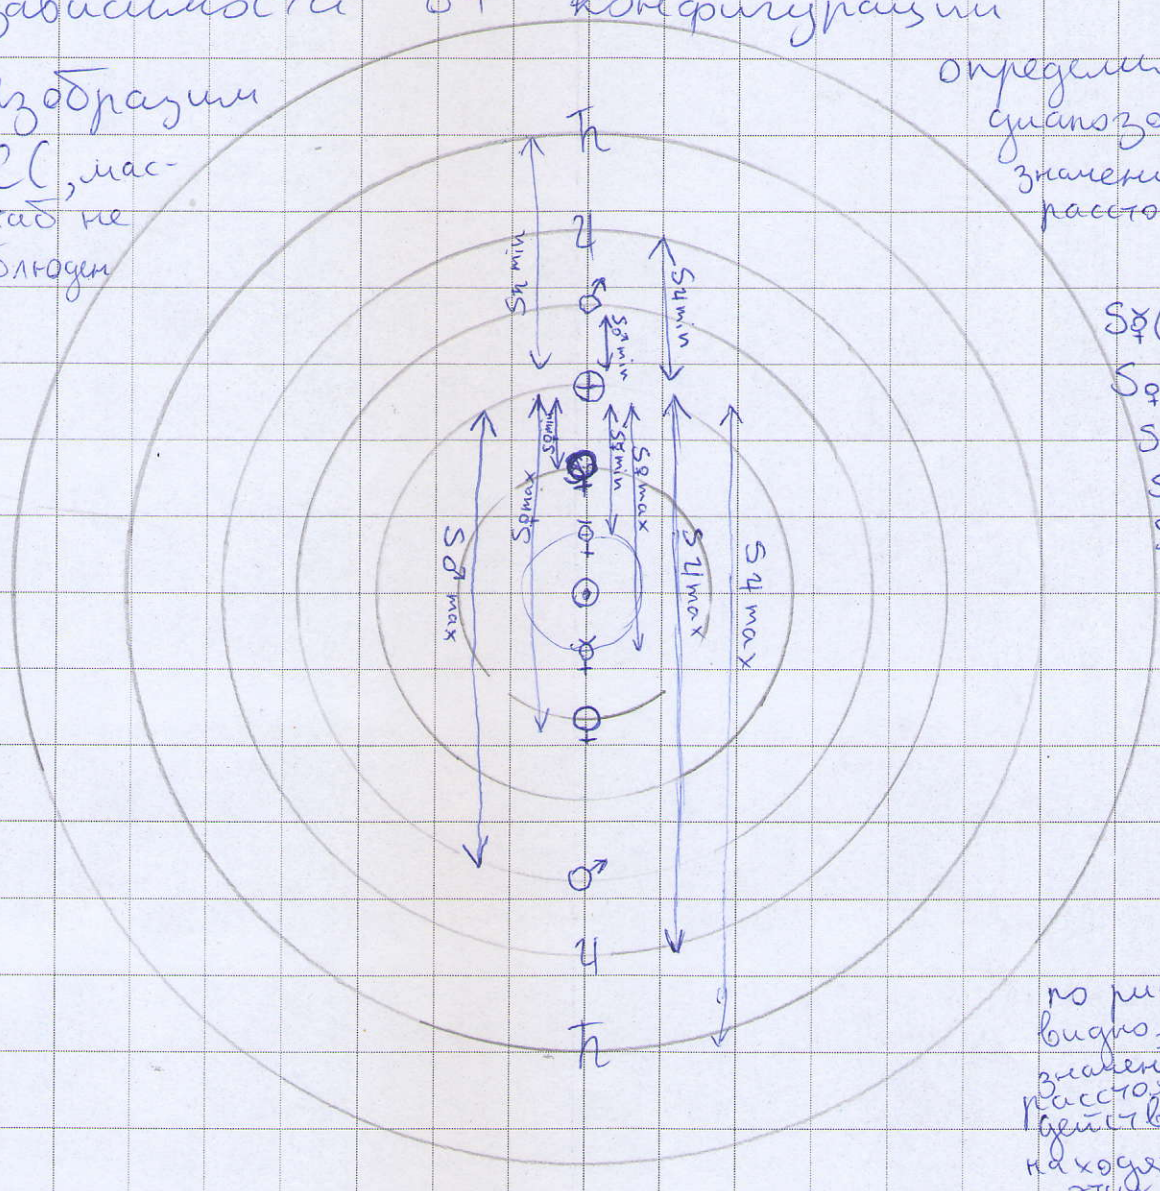 зависимости от конфигурации
Изобразим
СС, мас-
таб не
блюден
определи
диапазо
значени
рассто
♄
♃
♂
⊕
♀
☿
☉
☿
♀
♂
♃
♄
S♄ min
S♃ min
S♂ min
S♀ min
S☿ min
S☿ max
S♀ max
S♂ max
S♃ max
S♃ max
S☿(
S♀
S
по ри
видно
значен
расстоя
действ
находя